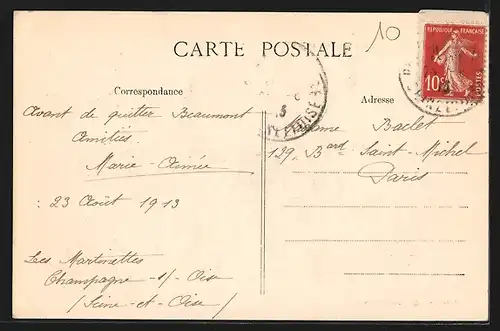 10
CARTE POSTALE
REPUBLIQUE FRANÇAISE
10c
POSTES
Correspondance
Adresse
Avant de quitter Beaumont
Amitiés
Marie-Aimée
: 23 Août 1913
Les Martinettes
Champagne -s/- Oise
(Seine-et-Oise/
Baclet
129. Bard Saint-Michel
Paris